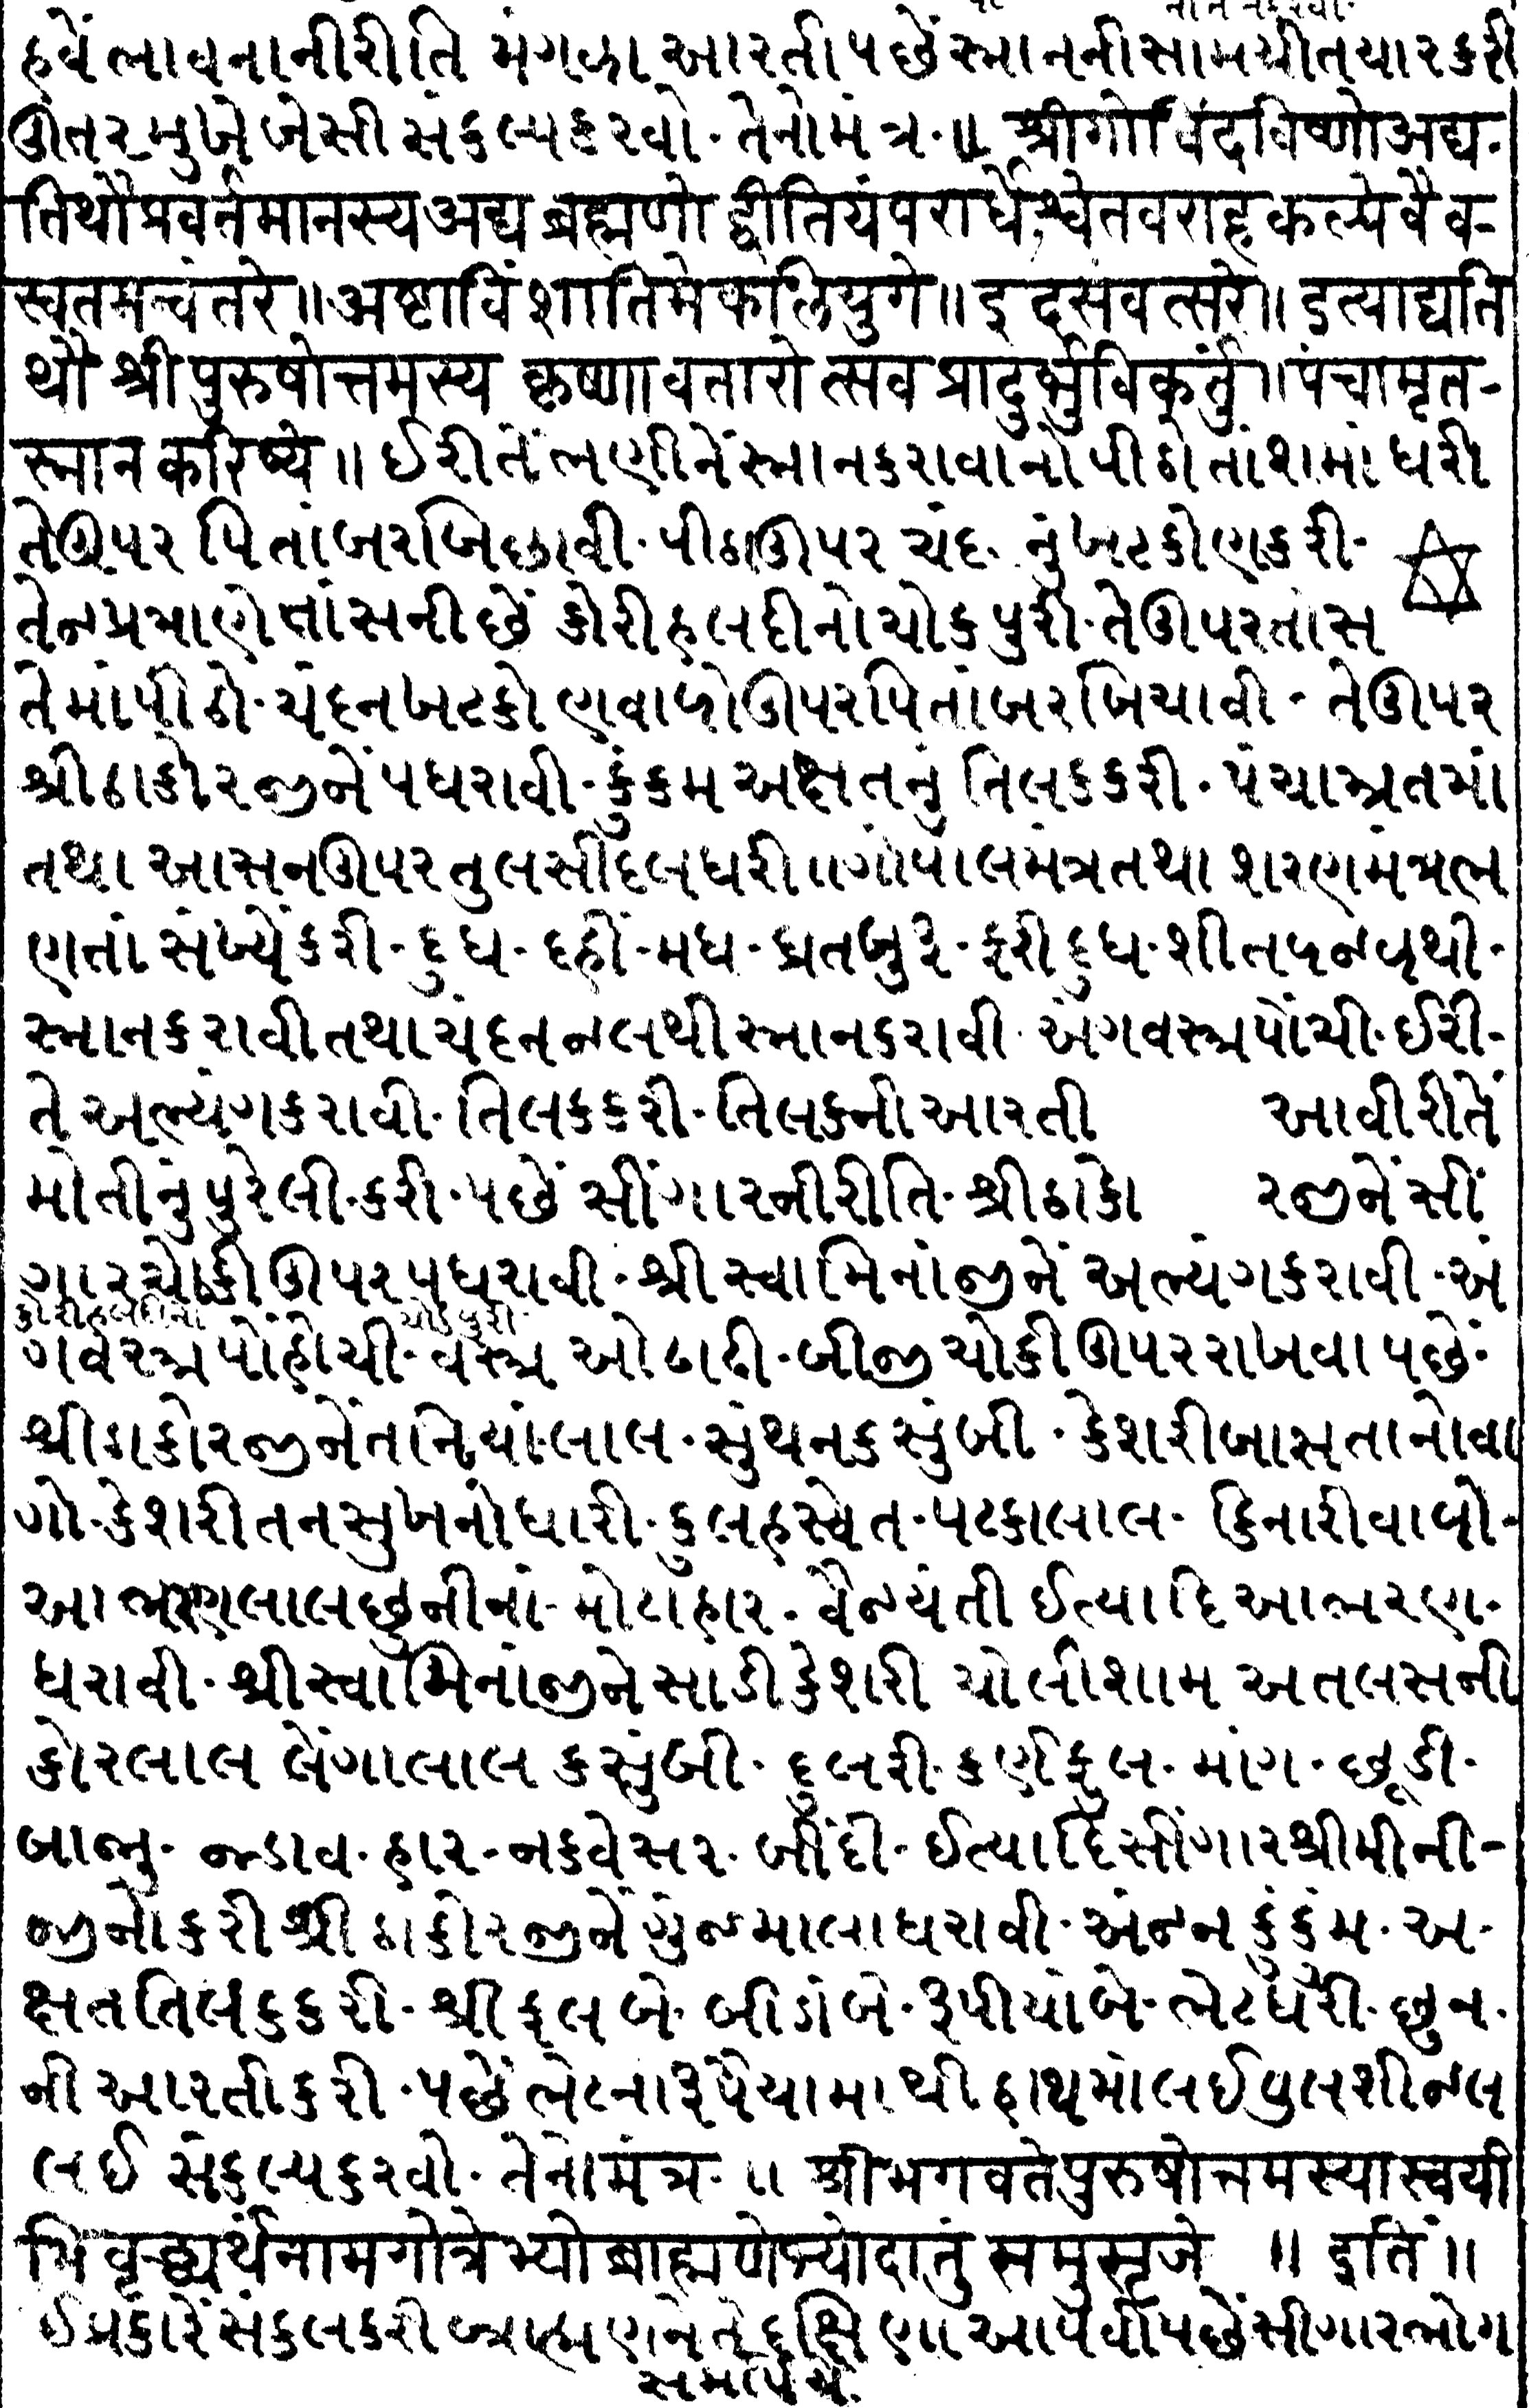 હવેં ભાવનાની રીતિ મંગળા આરતી પછેં સ્નાનની સામગ્રી તયાર કરી
ઊતર મુખે બેસી સંકલ્પ કરવો· તેનો મંત્ર·॥ श्रीगोविंदविष्णोअद्य-
तिथौप्रवर्तमानस्य अद्य ब्रह्मणो द्वीतियंपरार्धे श्वेतवराहकल्पे वैव-
स्वतमन्वंतरे॥ अष्टाविंशातिमे कलियुगे॥ इदसंवत्सरे॥ इत्याद्यति
थौ श्रीपुरुषोत्तमस्य कृष्णावतारोत्सव प्रादुर्भुविकर्तुं॥ पंचामृत-
स्नान करिष्ये॥ ઈ રીતેં ભણીનેં સ્નાન કરાવાનો પીઢો તાંશમાં ધરી
તે ઊપર પિતાંબર બિછાવી· પીઢા ઊપર ચંદ· નું ખટકોણ કરી-
તેજ પ્રમાણે તાંસની છેં કોરી હલદીનો ચોક પુરી· તે ઊપર તાંસ
તેમાં પીઢો· ચંદન ખટકોણવાળો ઊપર પિતાંબર બિચાવી· તે ઊપર
શ્રીઠાકોરજીનેં પધરાવી· કુંકમ અક્ષતનું તિલક કરી· પંચામ્રતમાં
તથા આસન ઊપર તુલસીદલ ધરી॥ ગોપાલમંત્ર તથા શરણમંત્ર ભ
ણતાં સંખ્યેં કરી· દુધ· દહીં· મધ· ઘ્રત બુરૂ· ફરી દુધ· શીતપજળથી·
સ્નાન કરાવી તથા ચંદન જલથી સ્નાન કરાવી· અંગવસ્ત્ર પોંચી· ઈ રી-
તે અભ્યંગ કરાવી· તિલક કરી· તિલકની આરતી આવી રીતેં
મોતીનું પુરેલી· કરી· પછેં સીંગારની રીતિ· શ્રીઠાકો રજીનેં સીં
ગારચોકી ઊપર પધરાવી· શ્રીસ્વામિનાંજીનેં અભ્યંગ કરાવી· અં
કોરી હલદીનો ચોક પુરી
ગવસ્ત્ર પોંહોચી· વસ્ત્ર ઓઢાઢી· બીજી ચોકી ઊપર રાખવા પછેં·
શ્રીઠાકોરજીનેં તનિયાં લાલ· સુંથન કસુંબી· કેશરી બાસતાનો વા
ગો· કેશરી તનસુખનો ધારી· કુલહ સ્વેત· પટકા લાલ· કિનારીવાળો-
આભરણ લાલ છુનીનાં· મોટા હાર· વૈજયંતી ઈત્યાદિ આભરણ·
ધરાવી· શ્રીસ્વામિનાંજીને સાડી કેશરી ચોલી શામ અતલસની
કોર લાલ લેંગા લાલ કસુંબી· દુલરી· કર્ણફુલ· માંગ· છૂડી·
બાજુ· જડાવ· હાર· નકવેસર· બીંદી· ઈત્યાદિ સીંગાર શ્રીમીની-
જીનો કરી શ્રીઠાકોરજીનેં ગુંજમાલા ધરાવી· અંજન કુંકુંમ· અ·
ક્ષત તિલક કરી· શ્રીફલ બે· બીડાં બે· રૂપીયાં બે· ભેટ ધરી· છુન·
ની આરતી કરી· પછેં ભેટના રૂપૈયામાથી હાથમાં લઈ તુલશી જલ
લઈ સંકલ્પ કરવો· તેનો મંત્ર·॥ श्रीभगवतेपुरुषोत्तमस्यास्वयी
भिवृद्ध्यर्थंनामगोत्रेभ्योब्राह्मणेभ्योदातुं समुसृजे ॥ इति॥
ઈ પ્રકારેં સંકલ કરી બ્રાહ્મણનેં તે દક્ષિણા આપવી પછેં સીગારભોગ
સમર્પિયેં